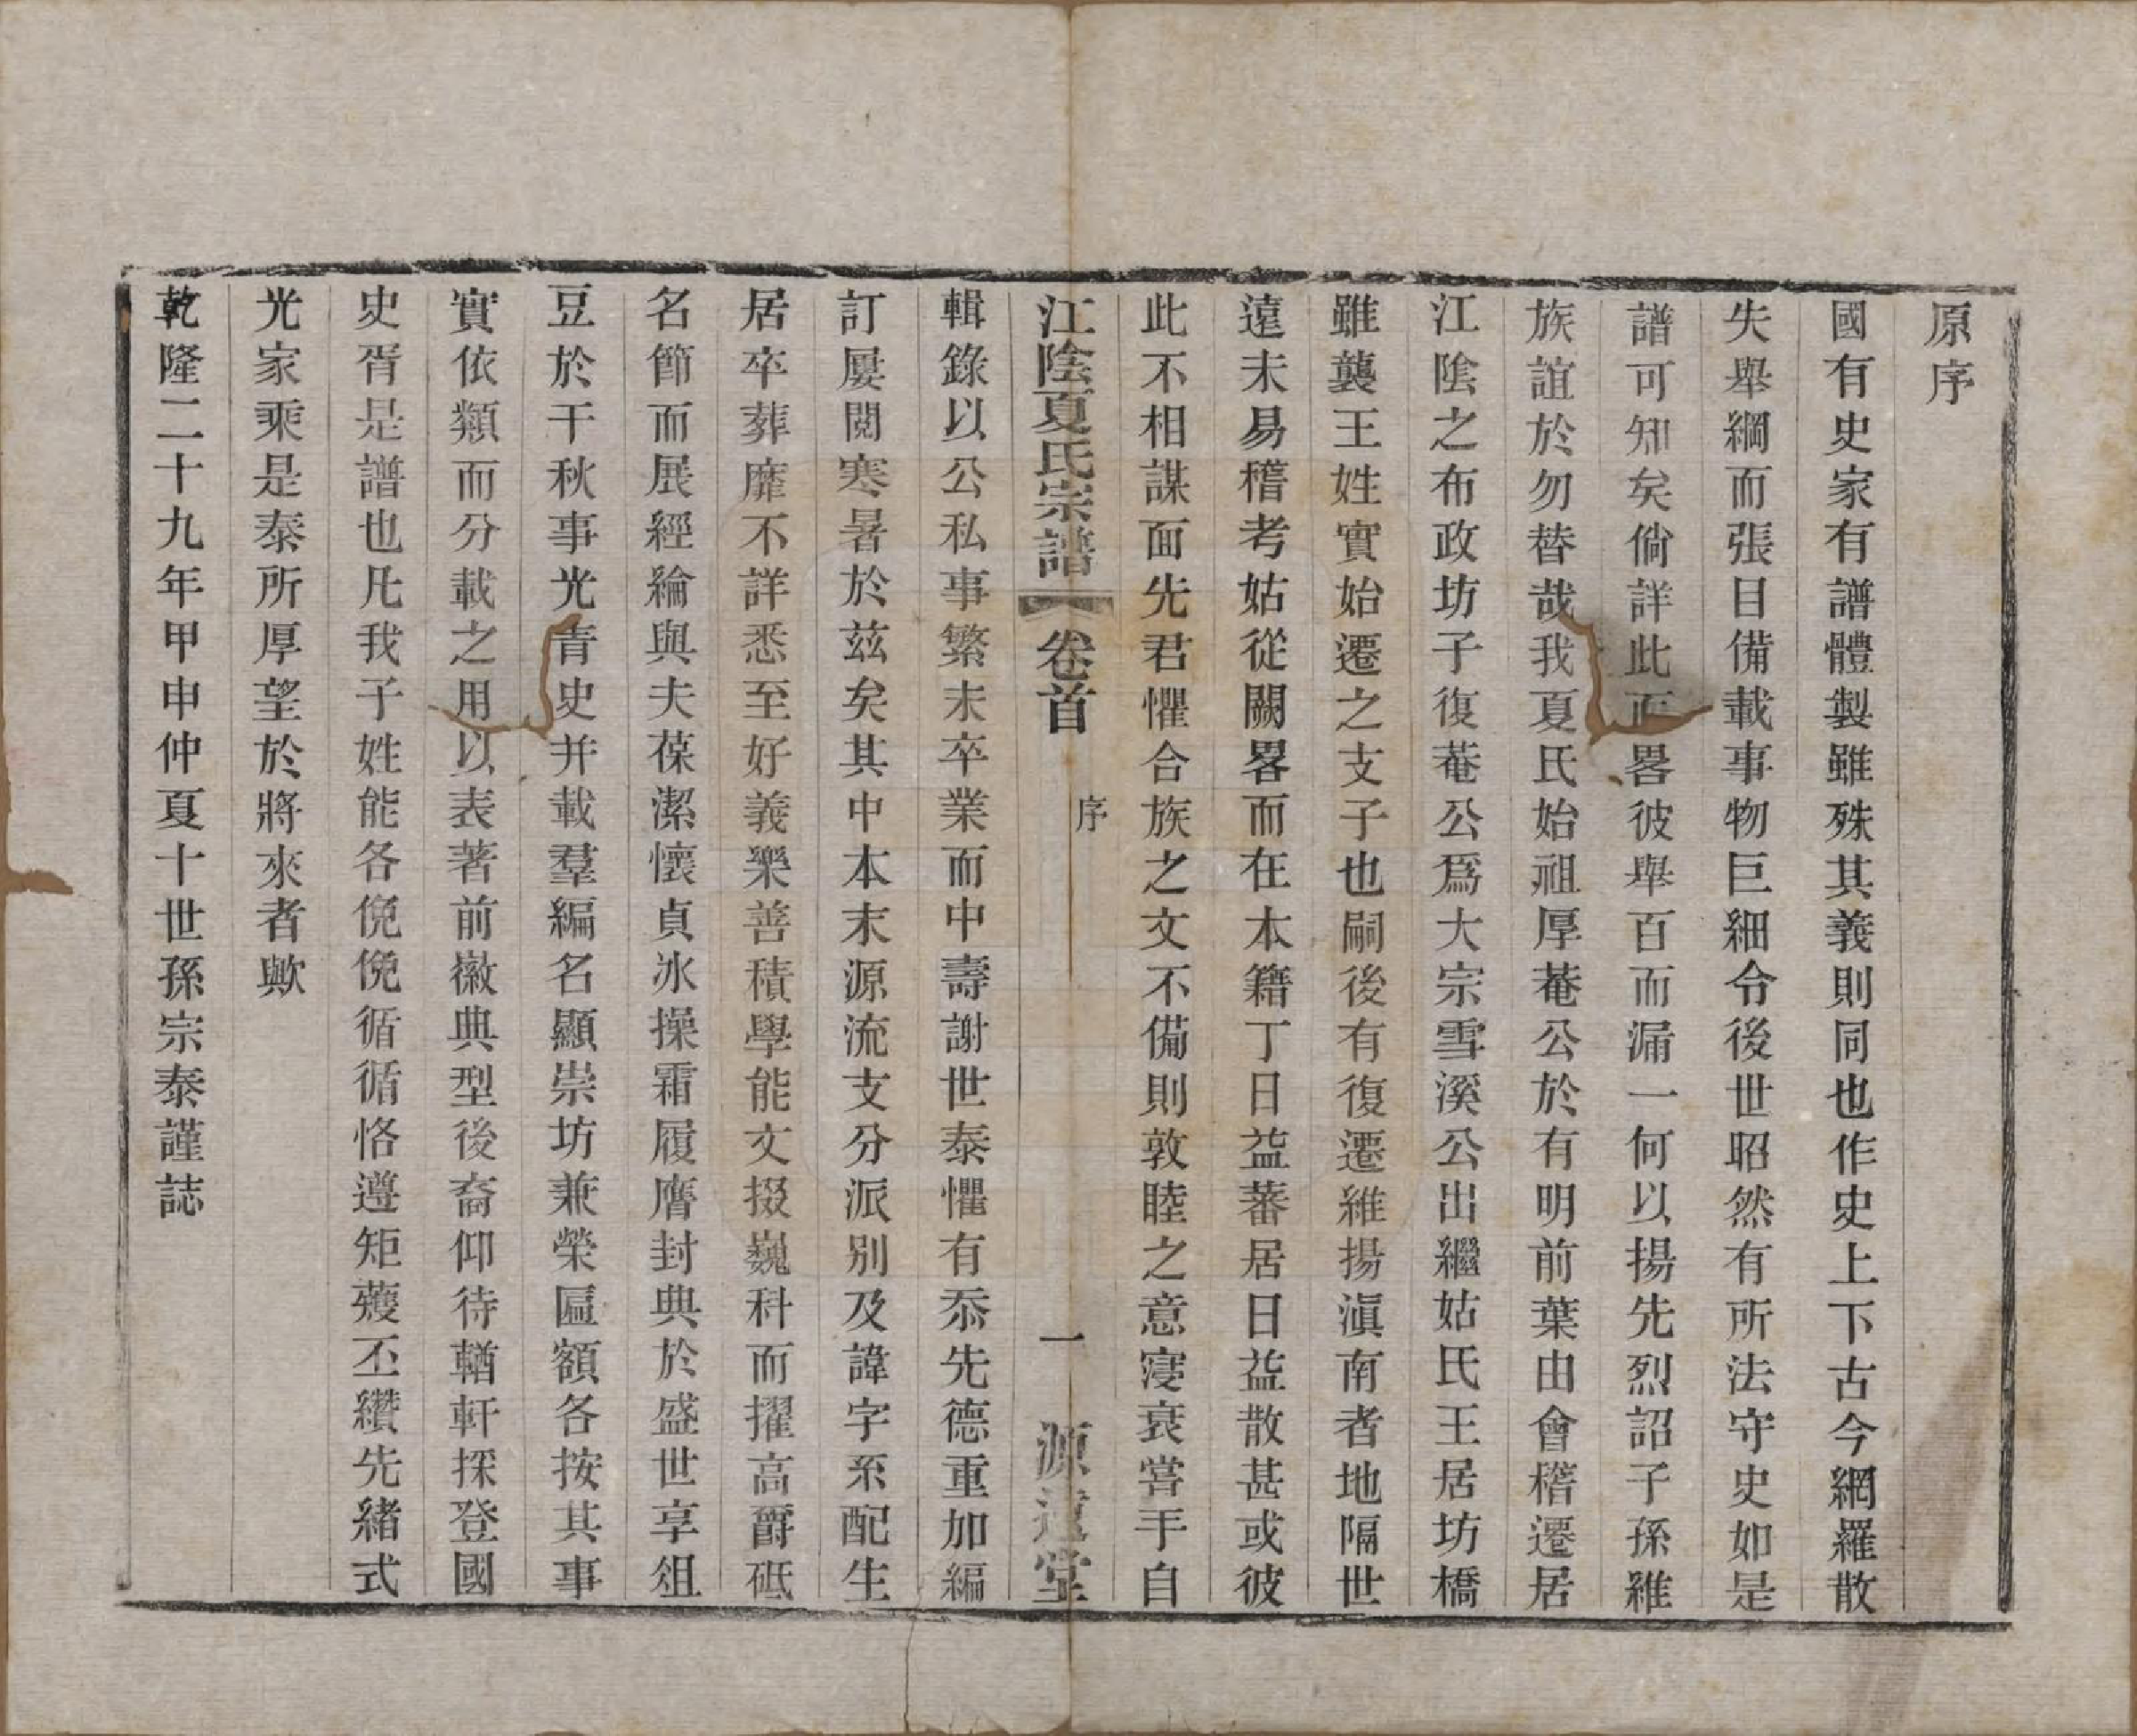 原序
國有史家有譜體製雖殊其義則同也作史上下古今網羅散
失舉綱而張目備載事物巨細令後世昭然有所法守史如是
譜可知矣倘詳此而畧彼舉百而漏一何以揚先烈詔子孫維
族誼於勿替哉我夏氏始祖厚菴公於有明前葉由會稽遷居
江陰之布政坊子復菴公爲大宗雪溪公出繼姑氏王居坊橋
雖襲王姓實始遷之支子也嗣後有復遷維揚滇南者地隔世
遠未易稽考姑從闕畧而在本籍丁日益蕃居日益散甚或彼
此不相謀面先君懼合族之文不備則敦睦之意寖衰嘗手自
江陰夏氏宗譜 卷首 序 一 源遠堂
輯錄以公私事繁未卒業而中壽謝世泰懼有忝先德重加編
訂屢閱寒暑於茲矣其中本末源流支分派別及諱字系配生
居卒葬靡不詳悉至好義樂善積學能文掇巍科而擢高爵砥
名節而展經綸與夫葆潔懷貞冰操霜履膺封典於盛世享俎
豆於千秋事光青史并載羣編名顯崇坊兼榮匾額各按其事
實依類而分載之用以表著前徽典型後裔仰待輶軒採登國
史胥是譜也凡我子姓能各俛俛循循恪遵矩矱丕纘先緒式
光家乘是泰所厚望於將來者歟
乾隆二十九年甲申仲夏十世孫宗泰謹誌